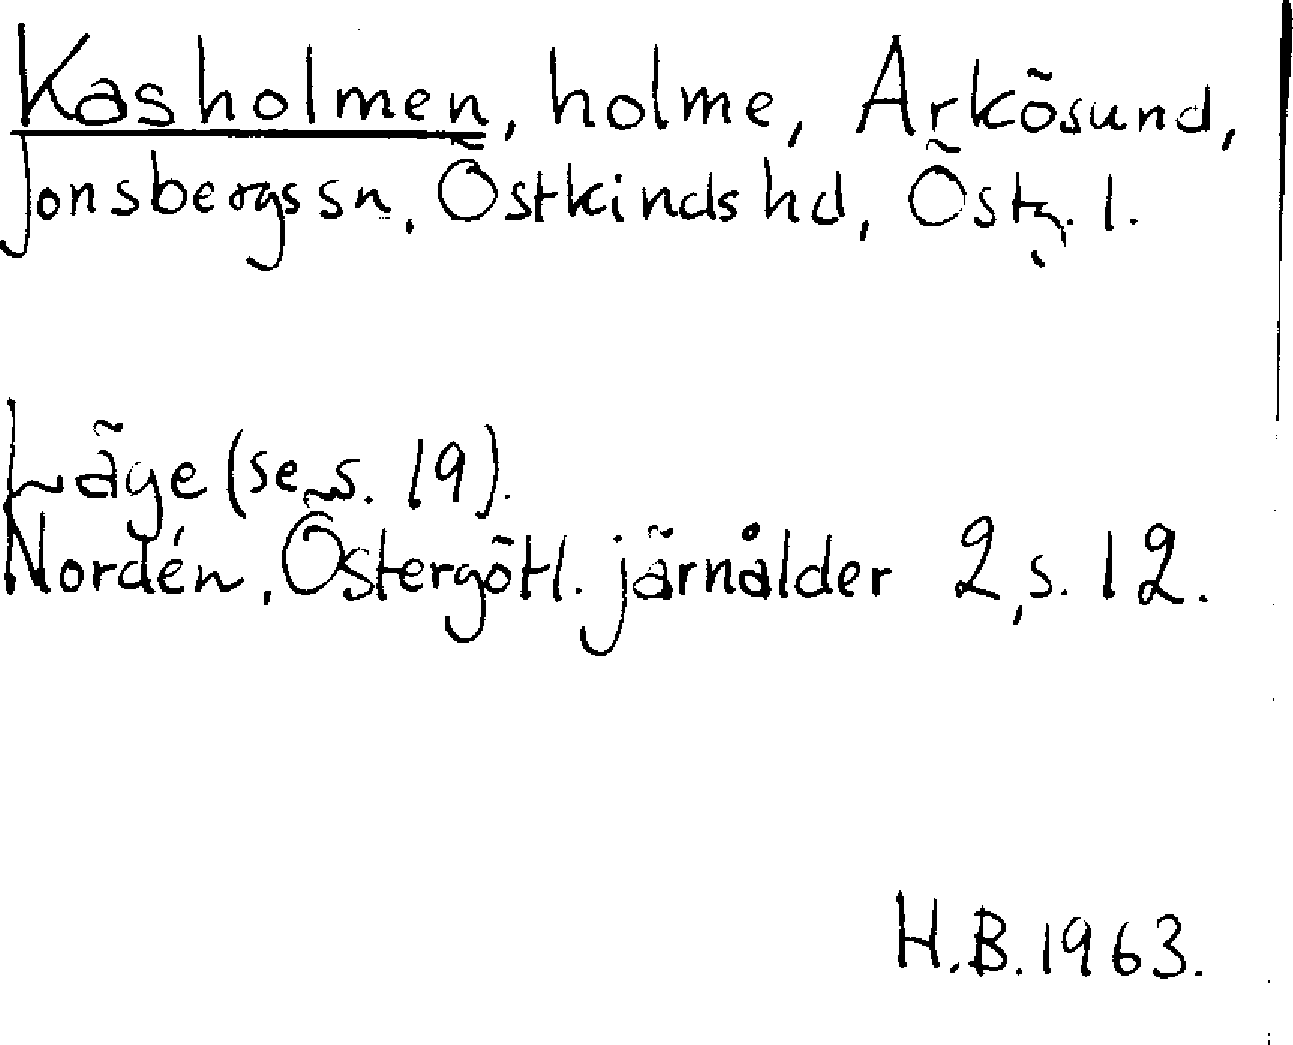 Kasholmen, holme, Arkösund,
Jonsbergs sn, Östkinds hd, Östg. l.
Läge (se s. 19).
Nordén, Östergötl. järnålder 2, s. 12.
H.B. 1963.